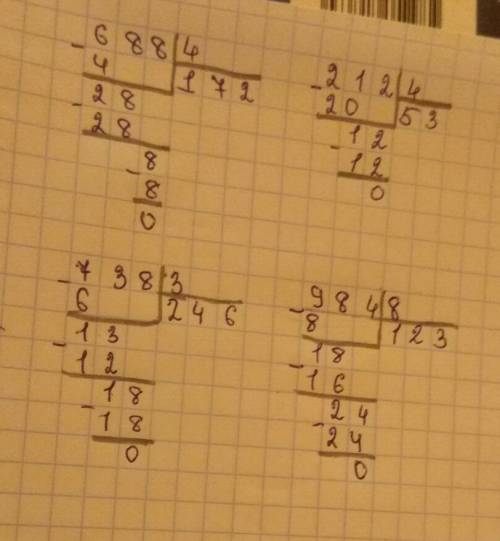 - 688 | 4
4 | 172
- 28
28
- 8
8
0
- 212 | 4
20 | 53
- 12
12
0
- 738 | 3
6 | 246
- 13
12
- 18
18
0
- 984 | 8
8 | 123
- 18
16
- 24
24
0